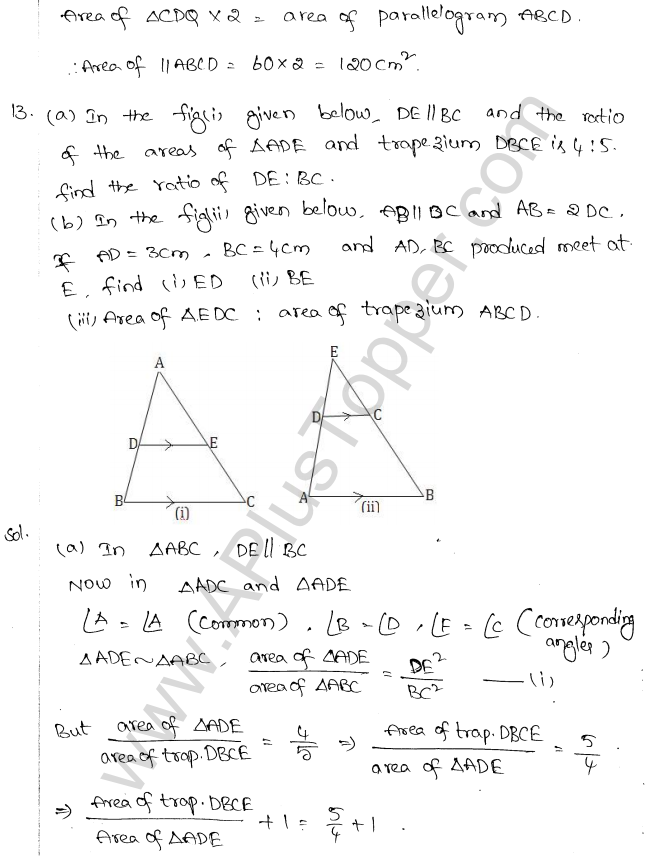 Area of △CDQ × 2 = area of parallelogram ABCD.
∴ Area of ||ABCD = 60×2 = 120cm².
13. (a) In the fig(i) given below, DE||BC and the ratio
of the areas of △ADE and trapezium DBCE is 4:5.
find the ratio of DE:BC.
(b) In the fig(ii) given below, AB||DC and AB = 2DC.
If AD = 3cm, BC = 4cm and AD, BC produced meet at
E, find (i) ED (ii) BE
(iii) Area of △EDC : area of trapezium ABCD.
A
D E
B C
(i)
E
D C
A B
(ii)
Sol.
(a) In △ABC, DE||BC
Now in △ADC and △ADE
∠A = ∠A (common), ∠B = ∠D, ∠E = ∠C (corresponding angles)
△ADE ~ △ABC, area of △ADE / area of △ABC = DE² / BC² — (i)
But area of △ADE / area of trap.DBCE = 4/5 ⇒ Area of trap.DBCE / area of △ADE = 5/4.
⇒ Area of trap.DBCE / Area of △ADE + 1 = 5/4 + 1.
www.APlusTopper.com